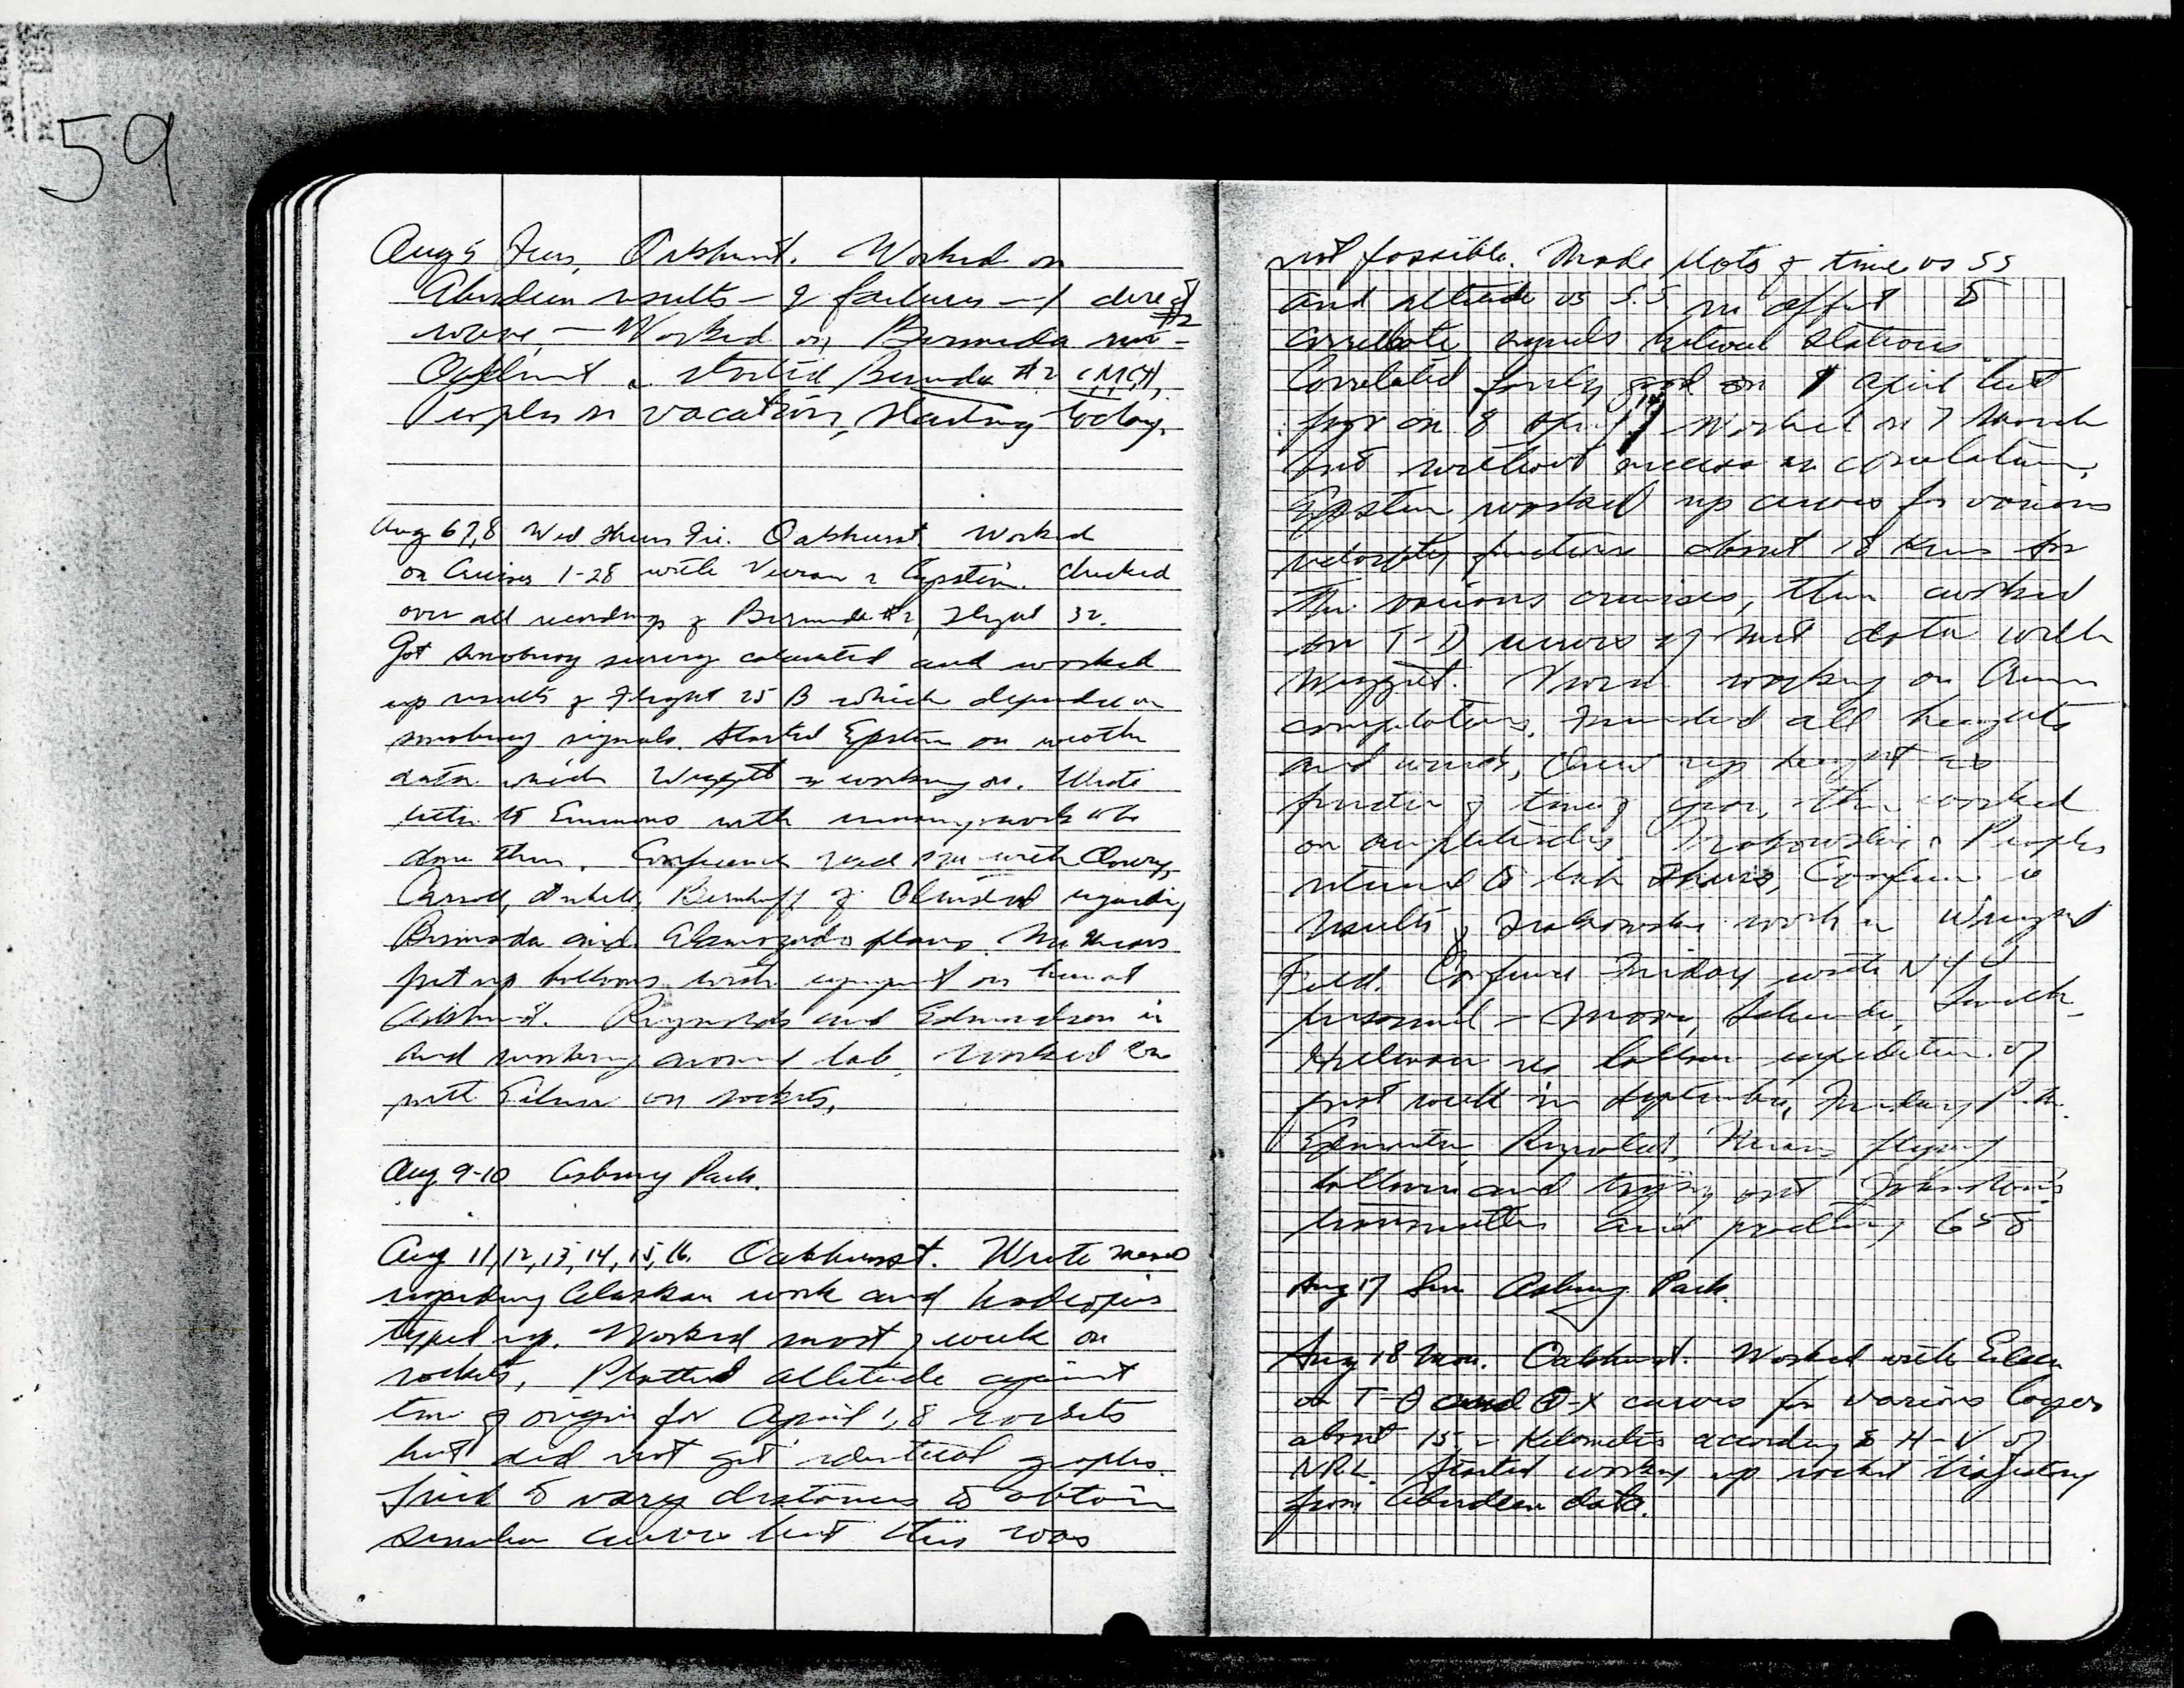 59
Aug 5 Tues, Oakhurst. Worked on
Aberdeen results – 2 failures – 1 direct
wave, – Worked on Bermuda #2
Oakhurst & started Bermuda #2 (MCH).
Peoples on vacation, starting today.
Aug 6 7, 8 Wed Thurs Fri. Oakhurst. Worked
on Cruises 1-28 with Vivian & Epstein. Checked
over all recordings of Bermuda #2, Flight 32.
Got survey computed and worked
up results of Flight 25 B which depended on
signals. Started Epstein on weather
data which Weggett is working on. Wrote
letter to Emmons with work to be
done there. Conference held with
Carroll, of Olmsted regarding
Bermuda and Alamogordo plans. Mears
put up balloons with equipment on here at
Oakhurst. Reynolds and Edmondson in
and working around lab. Worked
with Eileen on rockets.
Aug 9-10 Asbury Park.
Aug 11, 12, 13, 14, 15, 16. Oakhurst. Wrote memo
regarding Alaskan work and had
typed up. Worked most of week on
rockets. Plotted altitude against
time of origin for April 1, 8 rockets
but did not get identical graphs.
Tried to vary distances to obtain
similar curve but this was
not possible. Made plots of time vs SS
and altitude vs S.S in effort to
correlate signals between stations
Correlated fairly good on 1 April but
poor on 8 April. Worked on 7 March
but without success in correlation.
Epstein worked up curves for various
velocity functions about 18 Kms for
the various cruises, then worked
on T-D curves of data with
Weggett. Vivian working on
computations. all heights
and winds, drew up height as
function of time of year, then worked
on amplitudes. Trakowski & Peoples
returned to lab Thurs, Conference re
results of Trakowski work in Wright
Field. Conference Friday with NYU
personnel – Moore, Schneider, Smith,
Hackman re balloon expedition of
first week in September. Friday P.M.
Edmondson, Reynolds, Mears flying
balloon and trying out Johnston's
transmitter and 658
Aug 17 Sun Asbury Park.
Aug 18 Mon. Oakhurst. Worked with Eileen
on T-θ and θ-X curves for various layers
about 15 – kilometers according to H-V of
NRL. Started working up rocket trajectory
from Aberdeen data.